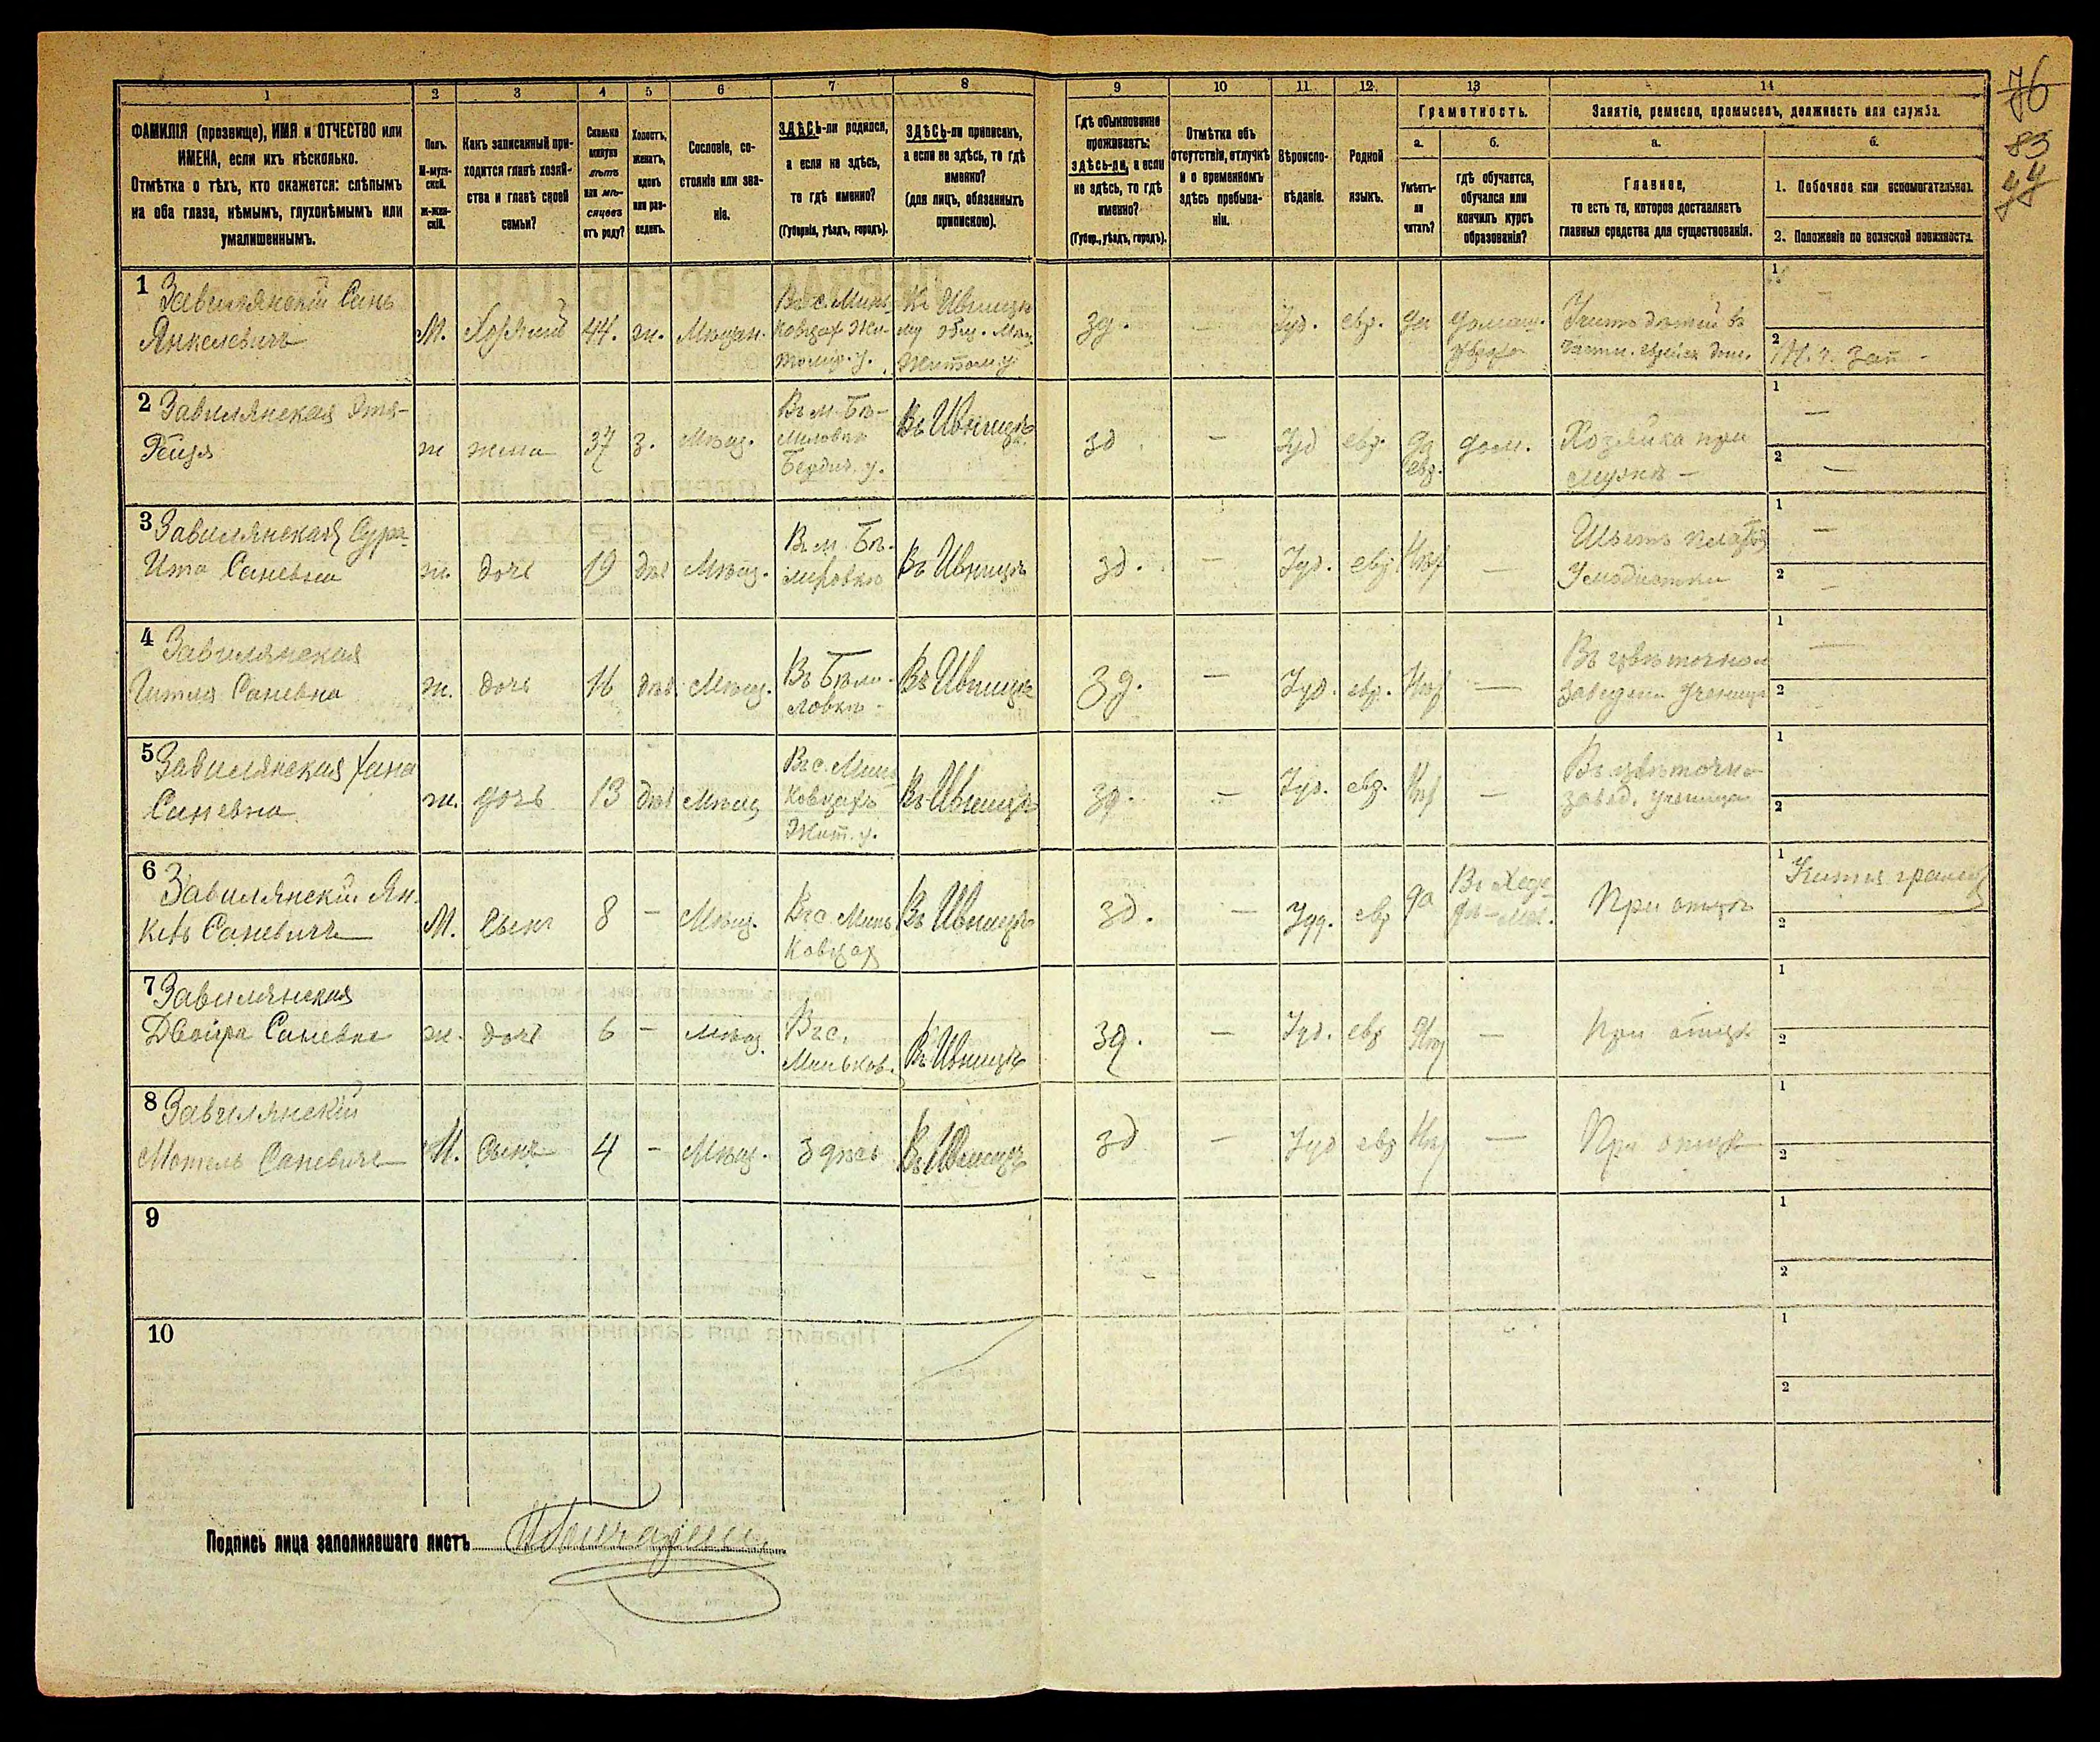 76
83
44
1 2 3 4 5 6 7 8 9 10 11 12 13 14
ФАМИЛІЯ (прозвище), ИМЯ и ОТЧЕСТВО или
ИМЕНА, если ихъ нѣсколько.
Отмѣтка о тѣхъ, кто окажется: слѣпымъ
на оба глаза, нѣмымъ, глухонѣмымъ или
умалишеннымъ.
Полъ.
М-муж-
ской.
Ж-жен-
скій.
Какъ записанный при-
ходится главѣ хозяй-
ства и главѣ своей
семьи?
Сколько
минуло
лѣтъ
или мѣ-
сяцевъ
отъ роду?
Холостъ,
женатъ,
вдовъ
или раз-
веденъ.
Сословіе, со-
стояніе или зва-
ніе.
ЗДѢСЬ-ли родился,
а если не здѣсь,
то гдѣ именно?
(Губернія, уѣздъ, городъ).
ЗДѢСЬ-ли приписанъ,
а если не здѣсь, то гдѣ
именно?
(для лицъ, обязанныхъ
припискою).
Гдѣ обыкновенно
проживаетъ:
здѣсь-ли, а если
не здѣсь, то гдѣ
именно?
(Губер., уѣздъ, городъ).
Отмѣтка объ
отсутствіи, отлучкѣ
и о временномъ
здѣсь пребыва-
ніи.
Вѣроиспо-
вѣданіе.
Родной
языкъ.
Грамотность.
а.
Умѣетъ-
ли
читать?
б.
гдѣ обучается,
обучался или
кончилъ курсъ
образованія?
Занятіе, ремесло, промыселъ, должность или служба.
а.
Главное,
то есть то, которое доставляетъ
главныя средства для существованія.
б.
1. Побочное или вспомогательное.
2. Положеніе по воинской повинности.
1 Завилянскій Сань
Янкелевичъ
М. Хозяинъ 44. ж. Мѣщан.
Въ с. Минь-
ковцах Жи-
томир. у.
Къ Ивницко
му общ. Мѣщ
Житом у
зд. — Іуд. евр. да домаш.
Учитъ дѣтей въ
1
2
2 Завилянская Этя-
Рейзя
ж жена 37 з. Мѣщ.
Въ м. Бѣ-
ловки
Бердич. у.
Въ Ивницкѣ
зд — Іуд евр. да
евр.
дом.
Хозяйка при
мужѣ —
1 —
2 —
3 Завилянская Сура-
Ита Саневна
ж. дочь 19 дѣв Мѣщ.
Въ м. Бѣ-
Въ Ивницкѣ
зд. — Іуд. евр Нѣт —
Шьетъ платья
У модистки
1 —
2 —
4 Завилянская
Гитля Саневна
ж. дочь 16 дѣв. Мѣщ.
Въ Бѣли-
ловкѣ -
Въ Ивницкѣ
зд. — Іуд. евр. Нѣт —
Въ цвѣточном
заведени ученица
1 —
2 -
5 Завилянская Хана
Саневна
ж. дочь 13 дѣв Мѣщ
Въ с. Минь
ковцахъ
Жит. у.
Въ Ивницкѣ
зд. — Іуд. евр. Нѣт —
Въ цвѣточно
завед. ученица
1
2
6 Завилянскій Ян-
кель Саневичъ
М. Сынъ 8 — Мѣщ.
Въ с. Минь
ковцах
Въ Ивницкѣ
зд. — Іуд. евр да
Въ Хеде
При отцѣ
1 Учится грамот
2
7 Завилянская
Двойра Саневна
ж. дочь 6 — мѣщ.
Въ с.
Миньков.
Въ Ивницкѣ
зд. — Іуд. евр Нѣт —
При отцѣ
1
2
8 Завилянскій
Мотель Саневичъ
М. Сынъ 4 — Мѣщ. Здѣсь Въ Ивницкѣ
зд — Іуд евр Нѣт —
При отцѣ
1
2
9
1
2
10
1
2
Подпись лица заполнявшаго листъ